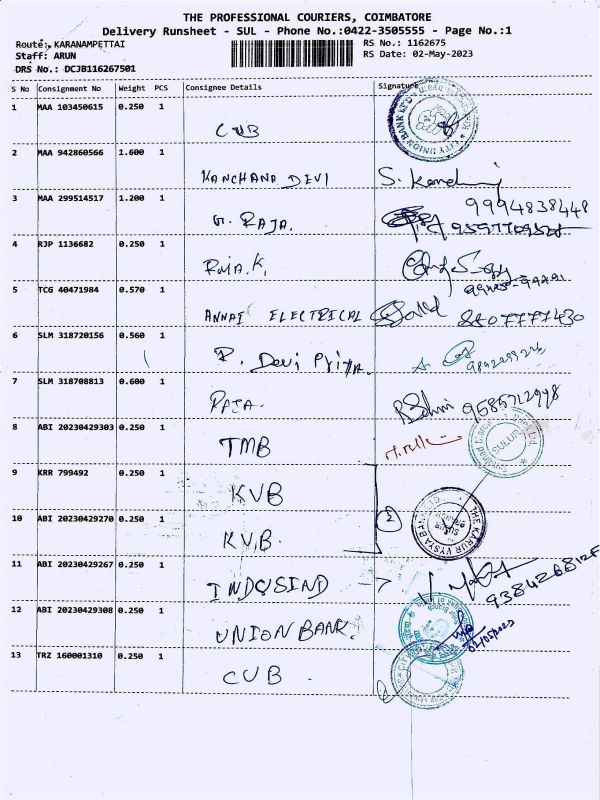 THE PROFESSIONAL COURIERS, COIMBATORE
Delivery Runsheet - SUL - Phone No.:0422-3505555 - Page No.:1
Route: KARANAMPETTAI RS No.: 1162675
Staff: ARUN RS Date: 02-May-2023
DRS No.: DCJB116267501
S No Consignment No Weight PCS Consignee Details Signature
1 MAA 103450615 0.250 1 CUB
2 MAA 942860566 1.600 1 KANCHANA DEVI S.
3 MAA 299514517 1.200 1 G. RAJA. 9994838448
4 RJP 1136682 0.250 1 RAJA.K.
5 TCG 40471984 0.570 1 ANNAI ELECTRICAL 8807777430
6 SLM 318720156 0.560 1 R. Devi Priya.
7 SLM 318708813 0.600 1 RAJA. 9585712998
8 ABI 20230429303 0.250 1 TMB SULUR
9 KRR 799492 0.250 1 KVB
10 ABI 20230429270 0.250 1 KVB. 2 THE KARUR VYSYA BANK
11 ABI 20230429267 0.250 1 INDUSIND →
12 ABI 20230429308 0.250 1 UNION BANK. 02/05/2023
13 TRZ 160001310 0.250 1 CUB .